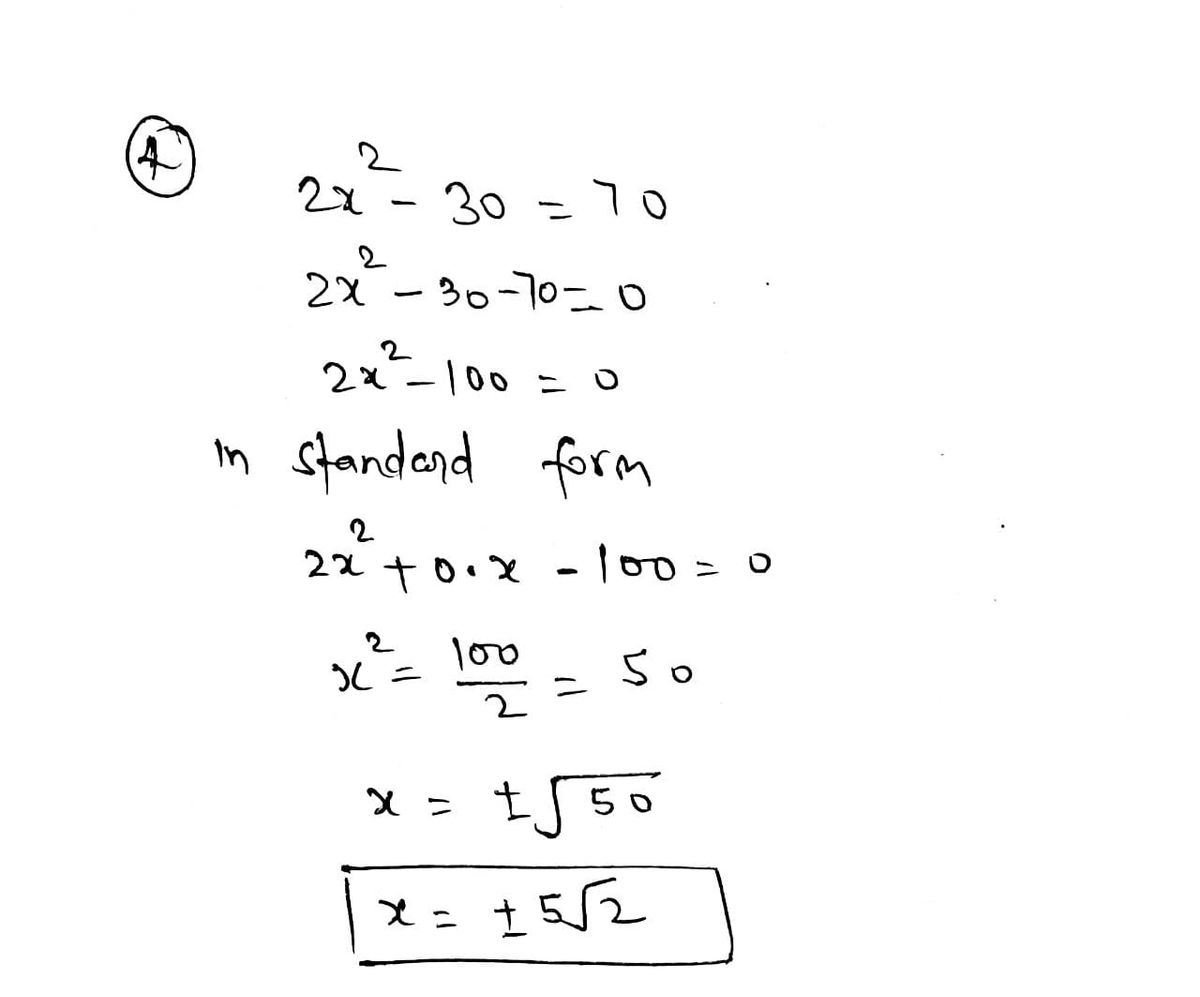 4
2x² - 30 = 70
2x² - 30 - 70 = 0
2x² - 100 = 0
In standard form
2x² + 0.x - 100 = 0
x² = 100/2 = 50
x = ±√50
x = ±5√2